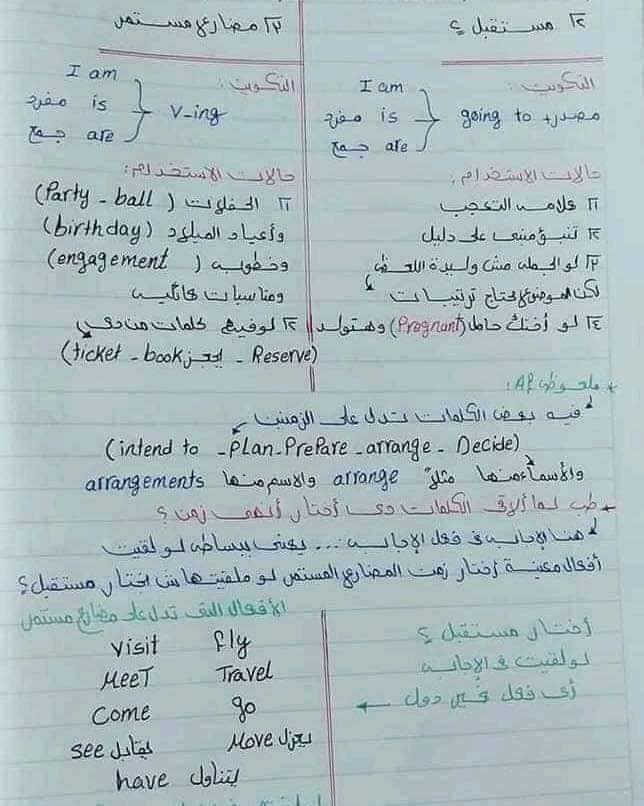 ٢) مستقبل ؟
التكوين :
I am
مفرد is
جمع are
going to + مصدر
حالات الاستخدام :
١) علامه التعجب
٢) تنبؤ مبنى على دليل
٣) لو الجمله مش وليدة اللحظه
لكن الموضوع يحتاج ترتيبات
٤) لو أختك حامل (Pregnant) وهتولد
٣) مضارع مستمر
التكوين :
I am
مفرد is
جمع are
V-ing
حالات الاستخدام :
١) الحفلات (Party - ball)
وأعياد الميلاد (birthday)
وخطوبه (engagement)
ومناسبات عائليه
٢) لو فيه كلمات من دى
(ticket - book يحجز - Reserve)
ملحوظه AP :
فيه بعض الكلمات تدل على الزمنين
(intend to - Plan - Prepare - arrange - Decide)
والأسماء منها مثلاً arrange والاسم منها arrangements
طب لما ألاقى الكلمات دى أختار أنهى زمن ؟
هنا الإجابه فى فعل الإجابه ... يعنى ببساطه لو لقيت
أفعال معينة إختار زمن المضارع المستمر لو ملقيتهاش اختار مستقبل ؟
أختار مستقبل ؟
لو لقيت فى الإجابه
أى فعل غير دول
الأفعال التى تدل على مضارع مستمر
Visit fly
MEET Travel
Come go
see يقابل Move يعزل
have يتناول